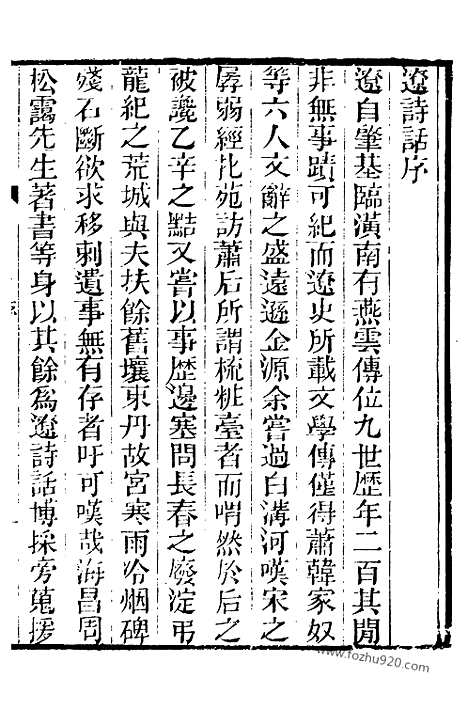 遼詩話序
遼自肇基臨潢南有燕雲傳位九世歷年二百其閒
非無事蹟可紀而遼史所載文學傳僅得蕭韓家奴
等六人文辭之盛遠遜金源余嘗過白溝河嘆宋之
孱弱經北苑訪蕭后所謂梳粧臺者而喟然於后之
被讒乙辛之黠又嘗以事歷邊塞問長春之廢淀弔
龍紀之荒城與夫扶餘舊壤東丹故宮寒雨冷烟碑
殘石斷欲求移剌遺事無有存者吁可嘆哉海昌周
松靄先生著書等身以其餘為遼詩話博採旁蒐援
www.fozhu920.com